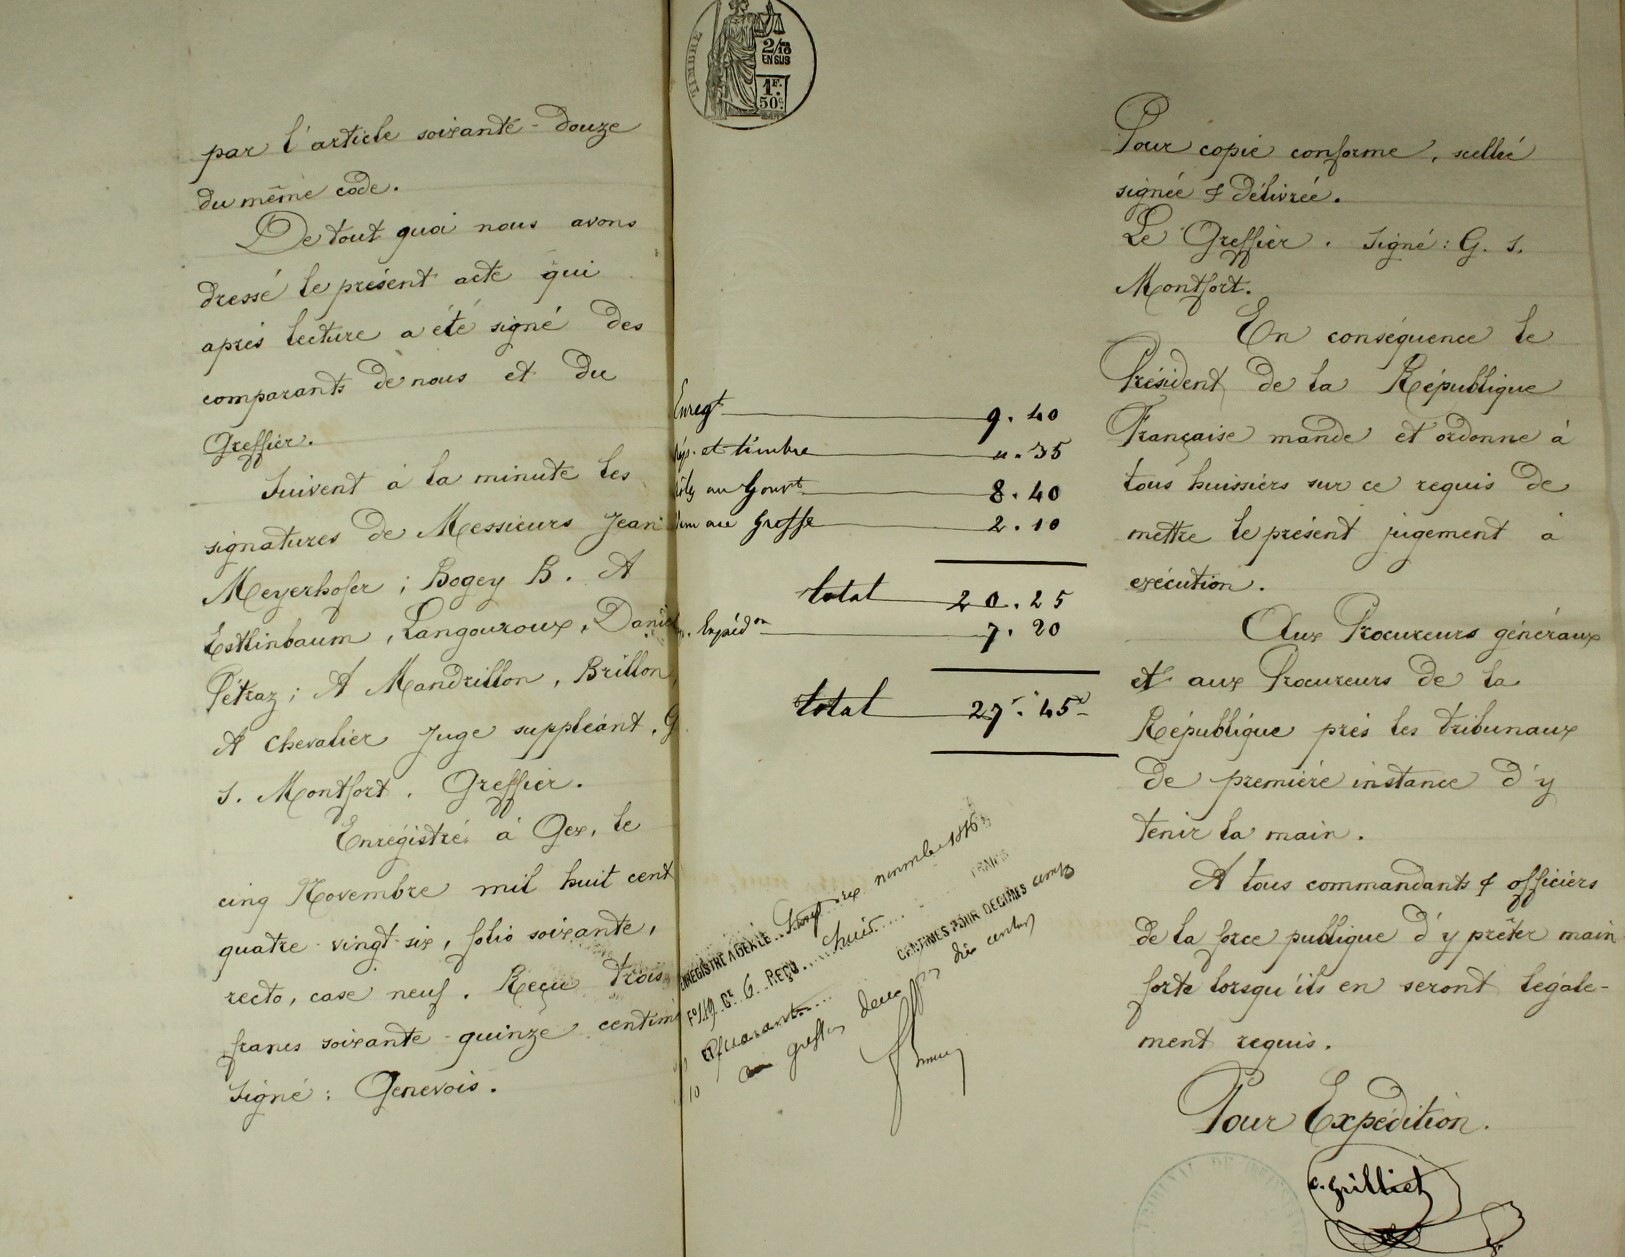 par l'article soixante-douze
du même code.
De tout quoi nous avons
dressé le présent acte qui
après lecture a été signé des
comparants de nous et du
Greffier.
Suivent à la minute les
signatures de Messieurs Jean
Meyerhofer ; Bogey B. A
Esthinbaum, Langouroux, Daniel
Pétraz ; A Mandrillon, Brillon,
A Chevalier Juge suppléant, G
S. Montfort. Greffier.
Enrégistré à Gex, le
cinq Novembre mil huit cent
quatre-vingt-six, folio soixante,
recto, case neuf. Reçu trois
francs soixante-quinze centim
Signé : Genevois.
TIMBRE
2/10
EN SUS
1F.
50c.
Enregt 9.40
et timbre 0.35
au Gouvt 8.40
au Greffe 2.10
total 20.25
Expédon 7.20
total 27.45
ENREGISTRÉ A GEX LE novembre 1886
Fo 19 Ce 6 REÇU huit FRANCS
quarante CENTIMES POUR DÉCIMES
au greffier deux dix centimes
Pour copie conforme, scellée
signée & délivrée.
Le Greffier. Signé : G. S.
Montfort.
En conséquence le
Président de la République
Française mande et ordonne à
tous huissiers sur ce requis de
mettre le présent jugement à
exécution.
Aux Procureurs généraux
et aux Procureurs de la
République près les tribunaux
de première instance d'y
tenir la main.
A tous commandants & officiers
de la force publique d'y prêter main
forte lorsqu'ils en seront légale-
ment requis.
Pour Expédition.
C. Grilliet
TRIBUNAL DE